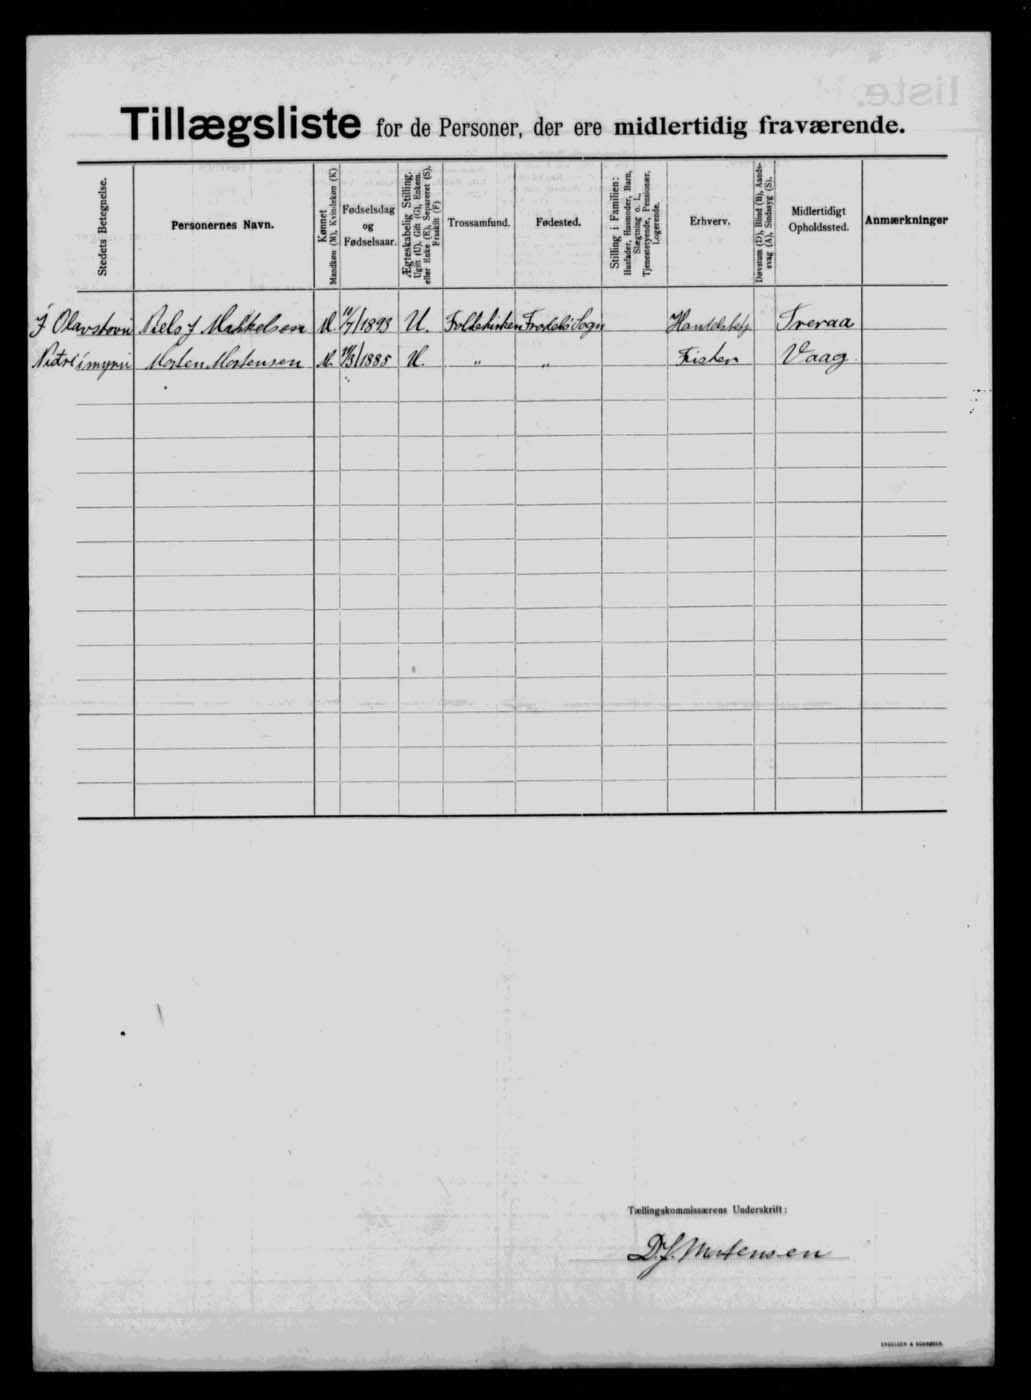 Tillægsliste for de Personer, der ere midlertidig fraværende.
Stedets Betegnelse.
Personernes Navn.
Kønnet
Mandkøn (M), Kvindekøn (K)
Fødselsdag
og
Fødselsaar.
Ægteskabelig Stilling.
Ugift (U), Gift (G), Enkem.
eller Enke (E), Separeret (S),
Fraskilt (F)
Trossamfund.
Fødested.
Stilling i Familien:
Husfader, Husmoder, Barn,
Slægtning o. l.,
Tjenestetyende, Pensionær,
Logerende.
Erhverv.
Døvstum (D), Blind (B), Aands-
svag (A), Sindssyg (S).
Midlertidigt
Opholdssted.
Anmærkninger
Í Olavstovu Niels J Mikkelsen M. 11/7/1893 U. Folkekirken Frodebö Sogn Handelsbetj Tveraa
Niðri í myrii Morten Mortensen M. /1885 U. " " Fisker Vaag
Tællingskommissærens Underskrift:
D.J. Mortensen
ENGELSEN & SCHRØDER.